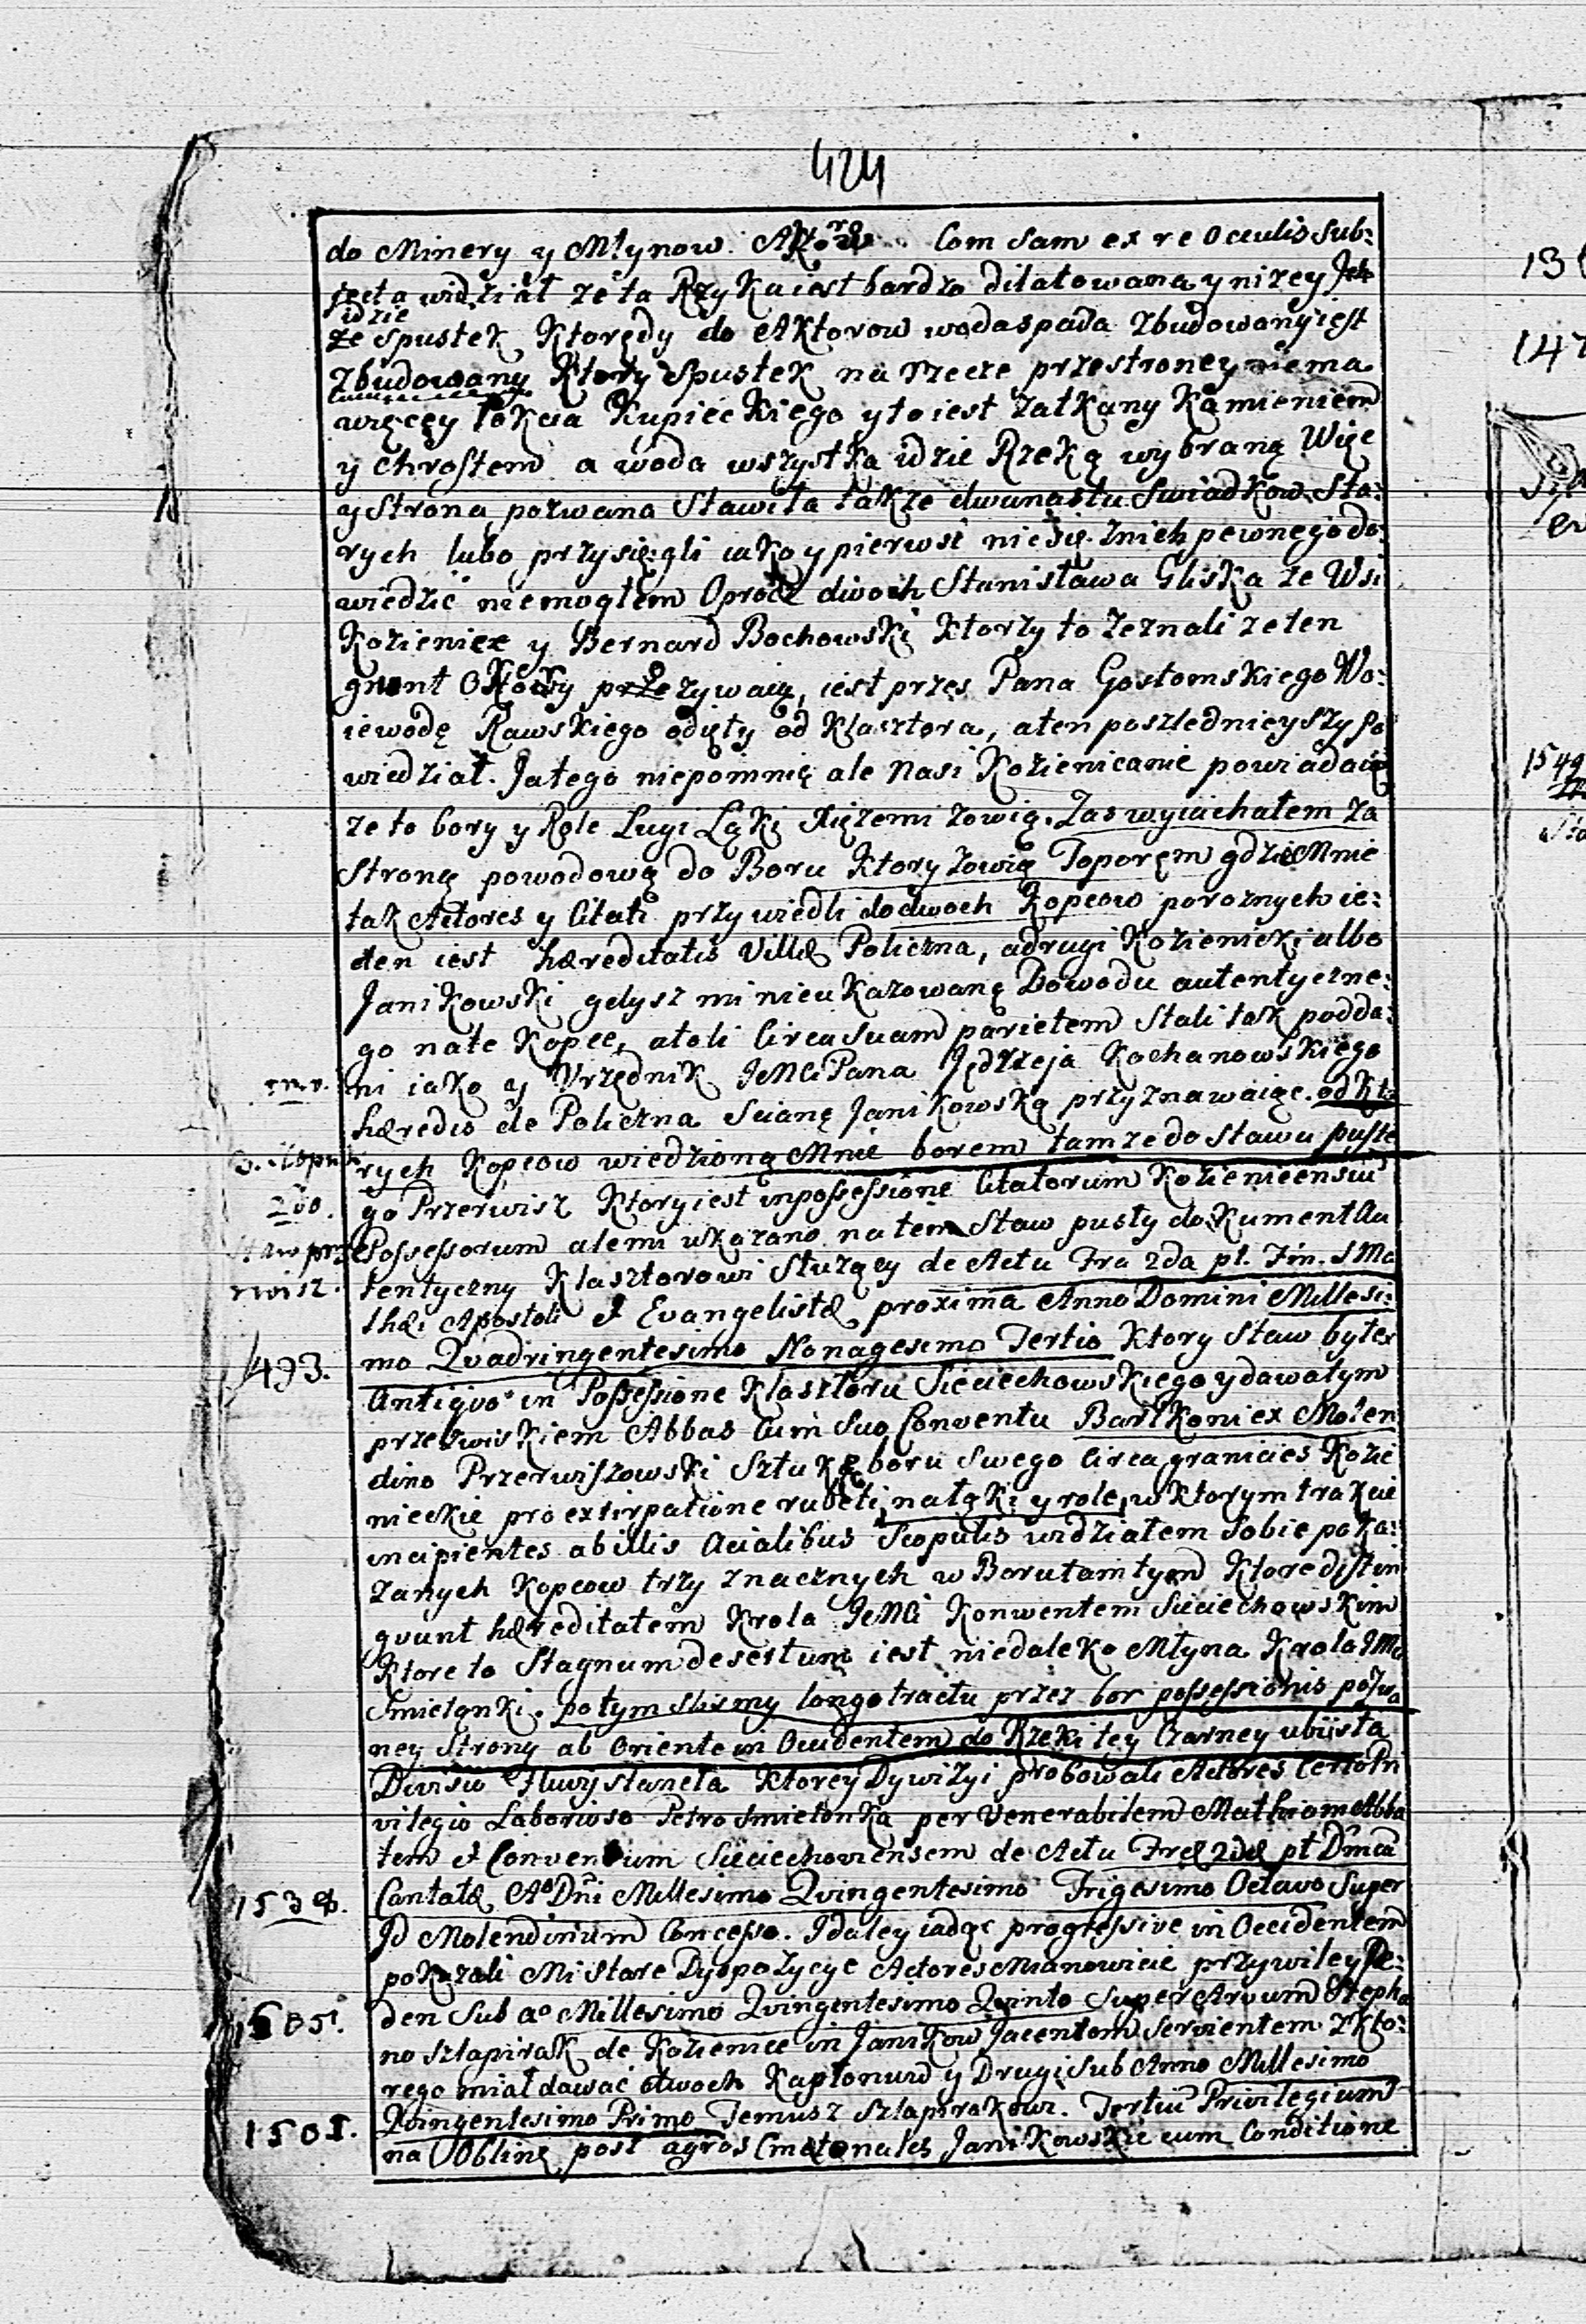 424
do Minery y Młynow Aktorow Com sam ex re oculis sub:
jecta widział że ta Rzyka iest bardzo dilatowana y niżey
idzie
że spustek Ktorędy do Aktorow woda spada zbudowany iest
zbudowany Ktory Spustek na rzecze przestroney niema
więcęy łokcia Kupieckiego y to iest zatkany Kamieniem
y chrostem a woda wszystka idzie Rzeką wybraną Więc
y strona pozwana Stawiła także dwunastu Swiadkow Sta:
rych lubo przysięgli iako y pierwsi nic się z nich pewnego do:
wiedzić niemogłem Oprocz dwoch Stanisława Gliska ze Wsi
Kozienice y Bernard Bochowski Ktorzy to zeznali że ten
grunt Ktory przezywaią, iest przes Pana Gostomskiego Wo:
iewodę Rawskiego odięty od Klasztora, a ten poszlednieyszy po
wiedział. Ja tego niepomnię ale Nasi Kozienicanie powiadaią
że to bory y Role Ługi Łąki Xiężemi zowią. Zas wyiachałem za
stroną powodową do Boru Ktory zowią Toporęm gdzie Mnie
tak Actores y Citati przywiedli do dwoch Kopcow poroznych ie:
den iest hæreditatis Villæ Policzna, a drugi Kozienicki albo
Janikowski gdysz mi nieukazowanę Dowodu autentyczne:
go na te Kopce, atoli Circa suam parietem stali tak podda:
ni iako y Vrzędnik JeMCi Pana Jędrzeja Kochanowskiego
hæredis de Policzna Scianę Janikowską przyznawaiąc. od kto
rych Kopcow wiedzioną Mnie borem tamże do Stawu puste
go Przerwisz Ktory iest in possessione Citatorum Kozienicensiu
Possessorum ale mi ukazano na tem Staw pusty dokument Au
2do.
Staw prze
rwisz.
tentyczny Klasztorowi Służący de Actu Fra 2da pt. Fin. S Ma
thæi Apostoli et Evangelistæ proxima Anno Domini Millesi:
1493.
mo Qvadringentesimo Nonagesimo Tertio Ktory Staw był ex
Antiqvo in Possessione Klasztoru Sieciechowskiego y dawał ym
przezwiskiem Abbas Cum Suo Conventu Bartkoni ex Molen
dino Przerwiszowski Sztukę boru Swego Circa granicies Kozie
nieckie pro extirpatione rubeti, na łąki y role, w ktorym trakcie
incipientes ab illis Acialibus Scopulis widziałem Sobie poka:
zanych Kopcow trzy znacznych w Boru tamtym Ktore distin
gvunt hæreditatem Krola JeMCi Konwentem Sieciechowskim
Ktore to Stagnum desertum iest niedaleko Młyna Krola JMC
Smietanki. potym slismy longo tractu przez bor possessionis pozwa
ney Strony ab Oriente in Occidentem do Rzeki tey Czarney ubi ista
Divisio Fluvÿ stanęła Ktorey Dywizyi probowali Actores Certo Pri
vilegio Laborioso Petro Smietonka per Venerabilem Mathiam Abba
tem et Conventum Sieciechoviensem de Actu Fræ 2dæ pt Dnica
1538.
Cantatæ Ao Dni Millesimo Qvingentesimo Trigesimo Octavo Super
Id Molendinum Concesso. I daley iadąc progressive in Occidentem
pokazali Mi Stare Dyspozycye Actores Mianowicie przywiley Je:
1505.
den Sub ao Millesimo Qvingentesimo Qvinto Super Arvum Stepha
no Szlapirak de Kozienice in Janikow Jacentem Servientem z kto:
rego miał dawać dwoch Kapłonuw y Drugi Sub Anno Millesimo
1501.
Qvingentesimo Primo Temusz Szlapirakowi. Tertiu Privilegium
na Oblinę post agros Cmetonales Janikowskie cum Conditione